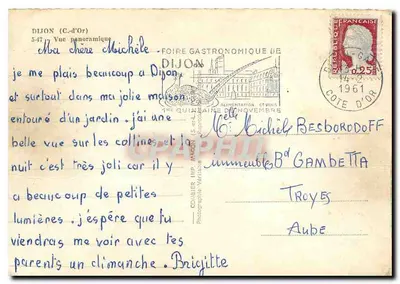 DIJON (C.-d'Or)
5-17 - Vue panoramique
Ma chère Michèle
je me plais beaucoup à Dijon
et surtout dans ma jolie maison
entouré d'un jardin. j'ai une
belle vue sur les collines et la
nuit c'est très joli car il y
a beaucoup de petites
lumières. j'espère que tu
viendras me voir avec tes
parents un dimanche. Brigitte
FOIRE GASTRONOMIQUE DE
DIJON
1re QUINZAINE DE NOVEMBRE
RÉPUBLIQUE FRANÇAISE
0,25
1961
COTE D'OR
Melle Michèle BESBORODOFF
immeubles Bd GAMBETTA
TROYES
Aube